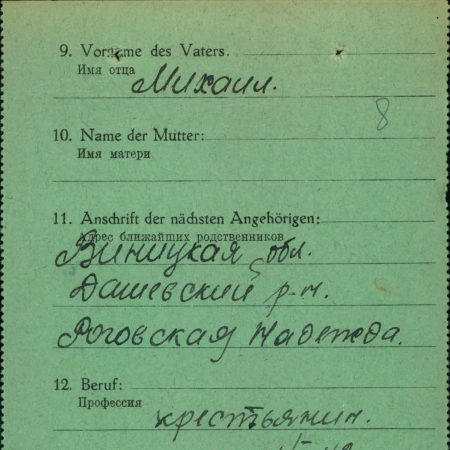 9. Vorname des Vaters.
Имя отца
Михаил.
8
10. Name der Mutter:
Имя матери
11. Anschrift der nächsten Angehörigen:
Адрес ближайших родственников
Виницкая обл.
Дашевский р-н.
Роговская Надежда.
12. Beruf:
Профессия
крестьянин.